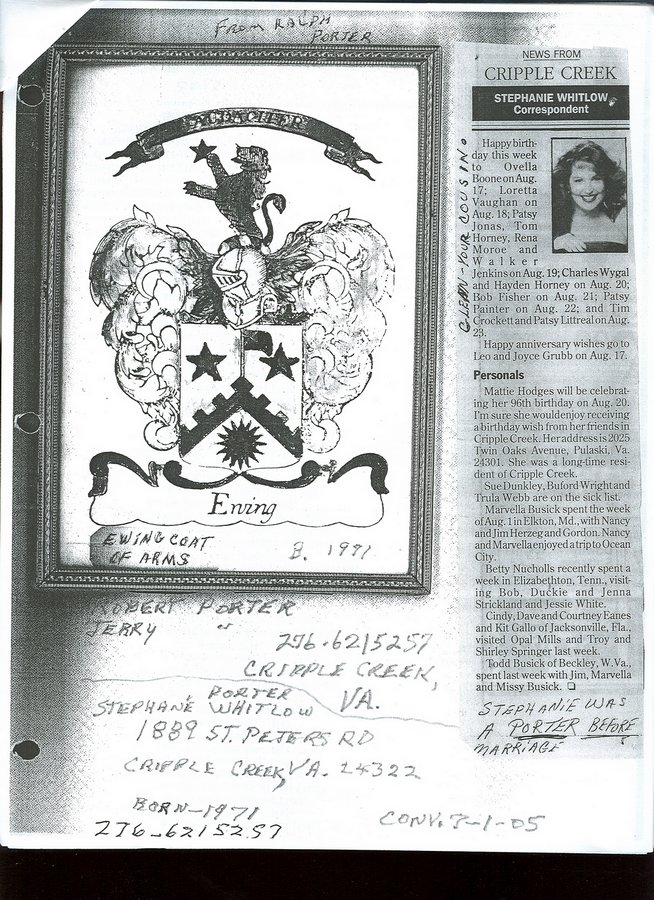 FROM RALPH
PORTER
AUDACITER
Ewing
EWING COAT
OF ARMS
B. 1971
ROBERT PORTER
JERRY "
276-6215257
CRIPPLE CREEK,
VA.
PORTER
STEPHANIE WHITLOW
1889 ST. PETERS RD
CRIPPLE CREEK, VA. 24322
BORN-1971
276-6215257
CONV. 7-1-05
GLENN-YOUR COUSIN
NEWS FROM
CRIPPLE CREEK
STEPHANIE WHITLOW
Correspondent
Happy birth-
day this week
to Ovella
Boone on Aug.
17; Loretta
Vaughan on
Aug. 18; Patsy
Jonas, Tom
Horney, Rena
Moroe and
Walker
Jenkins on Aug. 19; Charles Wygal
and Hayden Horney on Aug. 20;
Bob Fisher on Aug. 21; Patsy
Painter on Aug. 22; and Tim
Crockett and Patsy Littreal on Aug.
23.
Happy anniversary wishes go to
Leo and Joyce Grubb on Aug. 17.
Personals
Mattie Hodges will be celebrat-
ing her 96th birthday on Aug. 20.
I'm sure she would enjoy receiving
a birthday wish from her friends in
Cripple Creek. Her address is 2025
Twin Oaks Avenue, Pulaski, Va.
24301. She was a long-time resi-
dent of Cripple Creek.
Sue Dunkley, Buford Wright and
Trula Webb are on the sick list.
Marvella Busick spent the week
of Aug. 1 in Elkton, Md., with Nancy
and Jim Herzeg and Gordon. Nancy
and Marvella enjoyed a trip to Ocean
City.
Betty Nucholls recently spent a
week in Elizabethton, Tenn., visit-
ing Bob, Duckie and Jenna
Strickland and Jessie White.
Cindy, Dave and Courtney Eanes
and Kit Gallo of Jacksonville, Fla.,
visited Opal Mills and Troy and
Shirley Springer last week.
Todd Busick of Beckley, W.Va.,
spent last week with Jim, Marvella
and Missy Busick.
STEPHANIE WAS
A PORTER BEFORE
MARRIAGE